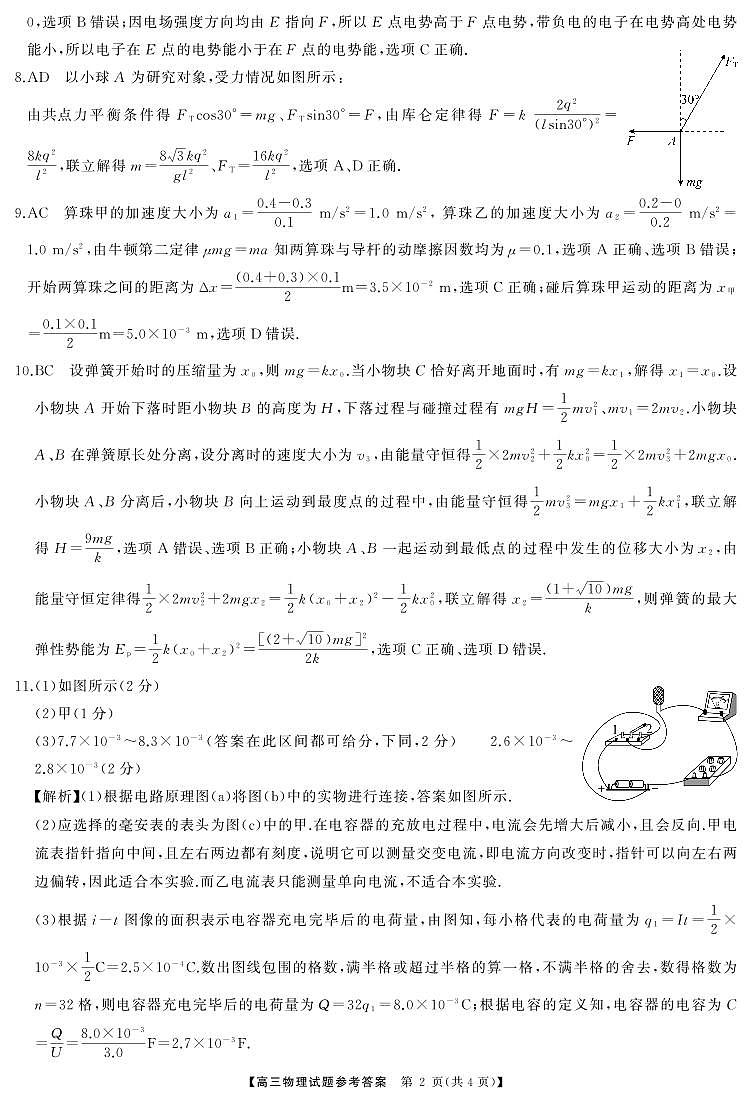 0,选项 B 错误;因电场强度方向均由 E 指向 F,所以 E 点电势高于 F 点电势,带负电的电子在电势高处电势
能小,所以电子在 E 点的电势能小于在 F 点的电势能,选项 C 正确.
8.AD 以小球 A 为研究对象,受力情况如图所示:
由共点力平衡条件得 F_T cos30°=mg、F_T sin30°=F,由库仑定律得 F=k 2q²/(l sin30°)²=
8kq²/l²,联立解得 m=8√3kq²/gl²、F_T=16kq²/l²,选项 A、D 正确.
F_T
30°
F
A
mg
9.AC 算珠甲的加速度大小为 a₁=(0.4-0.3)/0.1 m/s²=1.0 m/s²,算珠乙的加速度大小为 a₂=(0.2-0)/0.2 m/s²=
1.0 m/s²,由牛顿第二定律 μmg=ma 知两算珠与导杆的动摩擦因数均为 μ=0.1,选项 A 正确、选项 B 错误;
开始两算珠之间的距离为 Δx=(0.4+0.3)×0.1/2 m=3.5×10⁻² m,选项 C 正确;碰后算珠甲运动的距离为 x甲
=0.1×0.1/2 m=5.0×10⁻³ m,选项 D 错误.
10.BC 设弹簧开始时的压缩量为 x₀,则 mg=kx₀.当小物块 C 恰好离开地面时,有 mg=kx₁,解得 x₁=x₀.设
小物块 A 开始下落时距小物块 B 的高度为 H,下落过程与碰撞过程有 mgH=1/2 mv₁²、mv₁=2mv₂.小物块
A、B 在弹簧原长处分离,设分离时的速度大小为 v₃,由能量守恒得 1/2×2mv₂²+1/2 kx₀²=1/2×2mv₃²+2mgx₀.
小物块 A、B 分离后,小物块 B 向上运动到最度点的过程中,由能量守恒得 1/2 mv₃²=mgx₁+1/2 kx₁²,联立解
得 H=9mg/k,选项 A 错误、选项 B 正确;小物块 A、B 一起运动到最低点的过程中发生的位移大小为 x₂,由
能量守恒定律得 1/2×2mv₂²+2mgx₂=1/2 k(x₀+x₂)²-1/2 kx₀²,联立解得 x₂=(1+√10)mg/k,则弹簧的最大
弹性势能为 Eₚ=1/2 k(x₀+x₂)²=[(2+√10)mg]²/2k,选项 C 正确、选项 D 错误.
11.(1)如图所示(2 分)
(2)甲(1 分)
(3)7.7×10⁻³～8.3×10⁻³(答案在此区间都可给分,下同,2 分) 2.6×10⁻³～
2.8×10⁻³(2 分)
【解析】(1)根据电路原理图(a)将图(b)中的实物进行连接,答案如图所示.
(2)应选择的毫安表的表头为图(c)中的甲.在电容器的充放电过程中,电流会先增大后减小,且会反向.甲电
流表指针指向中间,且左右两边都有刻度,说明它可以测量交变电流,即电流方向改变时,指针可以向左右两
边偏转,因此适合本实验.而乙电流表只能测量单向电流,不适合本实验.
(3)根据 i-t 图像的面积表示电容器充电完毕后的电荷量,由图知,每小格代表的电荷量为 q₁=It=1/2×
10⁻³×1/2 C=2.5×10⁻⁴C.数出图线包围的格数,满半格或超过半格的算一格,不满半格的舍去,数得格数为
n=32 格,则电容器充电完毕后的电荷量为 Q=32q₁=8.0×10⁻³C;根据电容的定义知,电容器的电容为 C
=Q/U=8.0×10⁻³/3.0 F=2.7×10⁻³F.
【高三物理试题参考答案 第 2 页(共 4 页)】